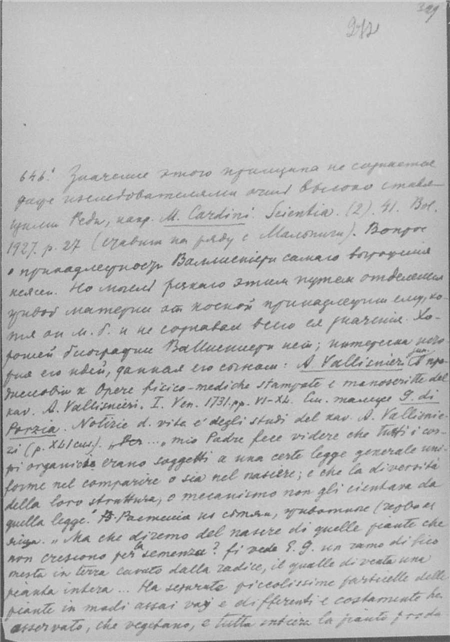 399
272
646. Значение этого принципа не сознается
даже исследователями очень высоко ставя-
щими Реди, напр. M. Cardini. Scientia. (2). 41. Bol.
1927. p. 27 (ставит на ряду с Мальпиги). Вопрос
о принадлежности Валлисниери самого выражения
неясен. Но мысль резкого этим путем отделения
живой материи от косной принадлежит ему, хо-
тя он м. б. и не сознавал всего ея значения. Хо-
рошей биографии Валлисниери нет; интересная
его идей, данная его сыном: A. Vallisnieri jun.
к Opere fisico-mediche stampate e manoscritte del
kav. A. Vallisnieri. I. Ven. 1731. pp. VI-XL. См. также G. di
Porzia. Notizie d. vita e degli studi del kav. A. Vallisnie-
ri (p. XLI си.). "... mio Padre fece videre che tutti i cor-
pi organici erano soggetti a una certe legge generale uni-
forme nel comparire o sia nel nascere; e che la diversità
della loro struttura, o mecanismo non gli cientana da
quella legge". Растения из семян, животные (человек)
яйца. "Ma che diremo del nascere di quelle piante che
non crescono per semenza? Si veda E. G. un ramo di fico
mesta in terra curato dalla radice, il quale diventa una
pianta intera... Ha separate piccolissime particelle delle
piante in modi assai vari e differenti e costamente ha
osservato, che vegetano, e tutta intiere la pianta